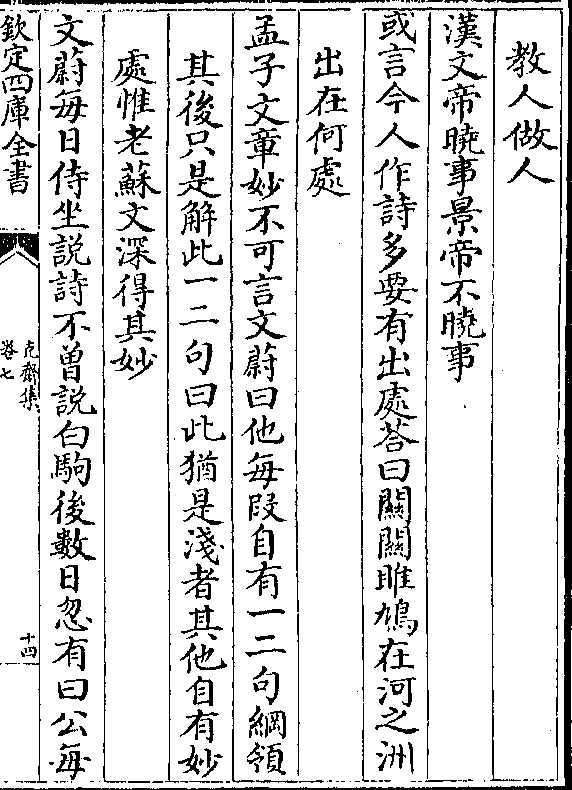 教人做人
漢文帝曉事景帝不曉事
或言今人作詩多要有出處荅曰關關雎鳩在河之洲
出在何處
孟子文章妙不可言文蔚曰他每段自有一二句綱領
其後只是解此一二句曰此猶是淺者其他自有妙
處惟老蘇文深得其妙
文蔚每日侍坐説詩不曾説白駒後數日忽有曰公每
欽定四庫全書
克齋集
卷七
十四